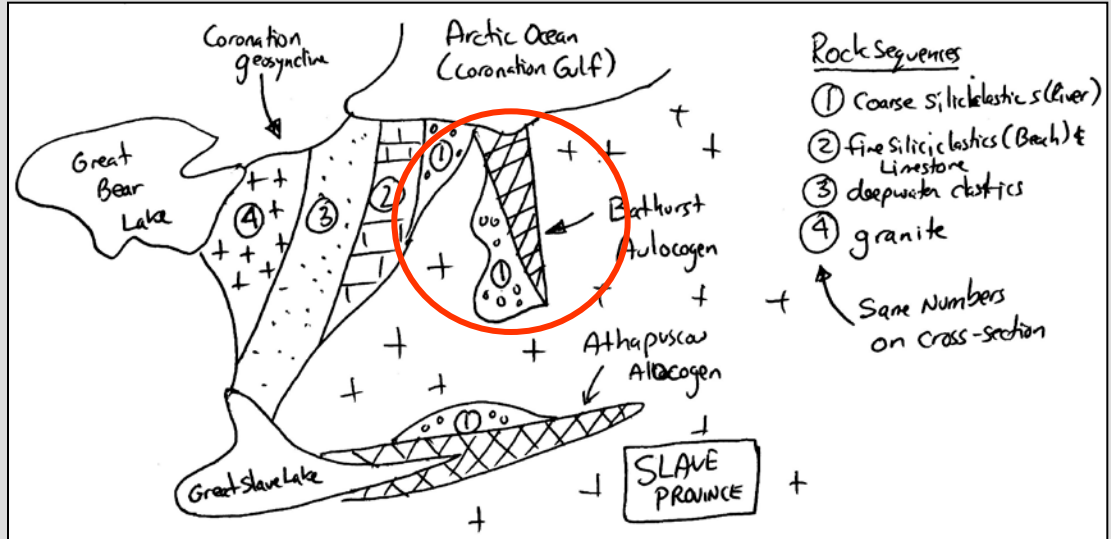 Coronation
geosyncline
Arctic Ocean
(Coronation Gulf)
Great
Bear
Lake
4
3
2
1
1
Bathurst
Aulocogen
Athapuscow
Allocogen
1
Great Slave Lake
SLAVE
PROVINCE
Rock Sequences
1 Coarse siliciclastics (River)
2 fine Siliciclastics (Beach) &
Limestone
3 deepwater clastics
4 granite
Same Numbers
on cross-section